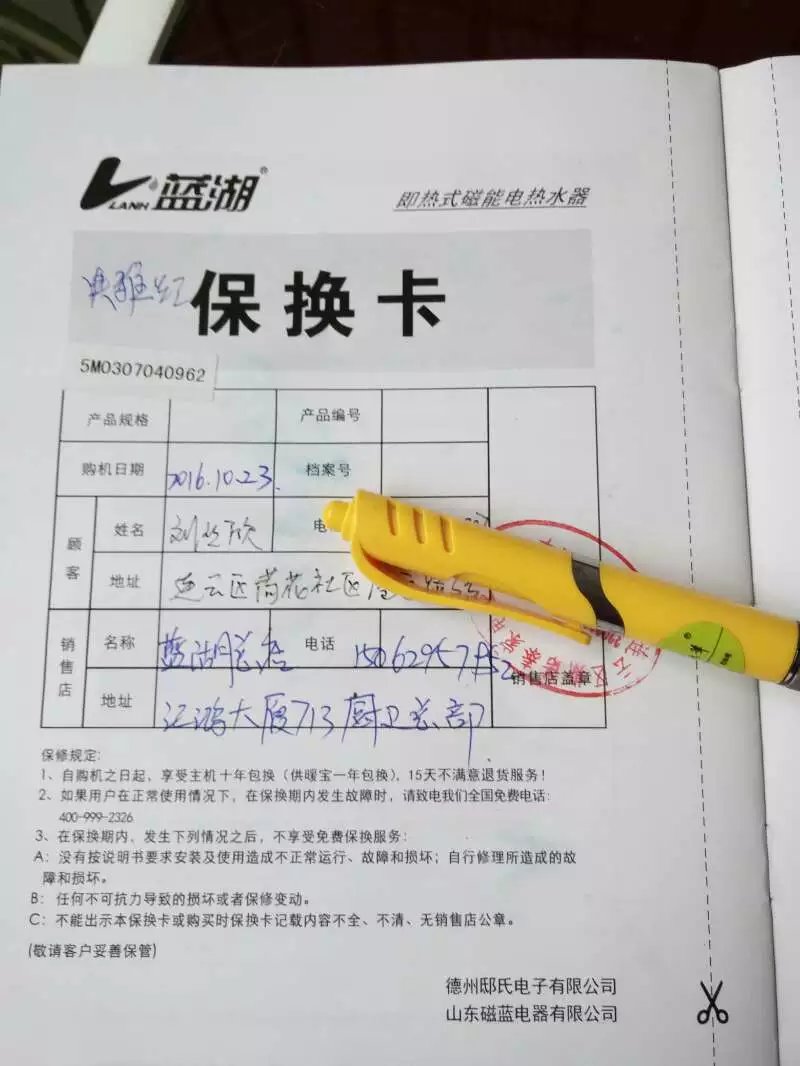 LANH 蓝湖®
即热式磁能电热水器
保换卡
5M0307040962
产品规格 产品编号
购机日期 2016.10.23. 档案号
顾客 姓名 刘 欣 电
地址 连云区荷花社区
销售店 名称 蓝湖 电话 150629571
销售店盖章
地址 江鸿大厦713厨卫总部
保修规定:
1、自购机之日起，享受主机十年包换（供暖宝一年包换），15天不满意退货服务！
2、如果用户在正常使用情况下，在保换期内发生故障时，请致电我们全国免费电话：
400-999-2326
3、在保换期内，发生下列情况之后，不享受免费保换服务：
A：没有按说明书要求安装及使用造成不正常运行、故障和损坏；自行修理所造成的故
障和损坏。
B：任何不可抗力导致的损坏或者保修变动。
C：不能出示本保换卡或购买时保换卡记载内容不全、不清、无销售店公章。
(敬请客户妥善保管)
德州邸氏电子有限公司
山东磁蓝电器有限公司